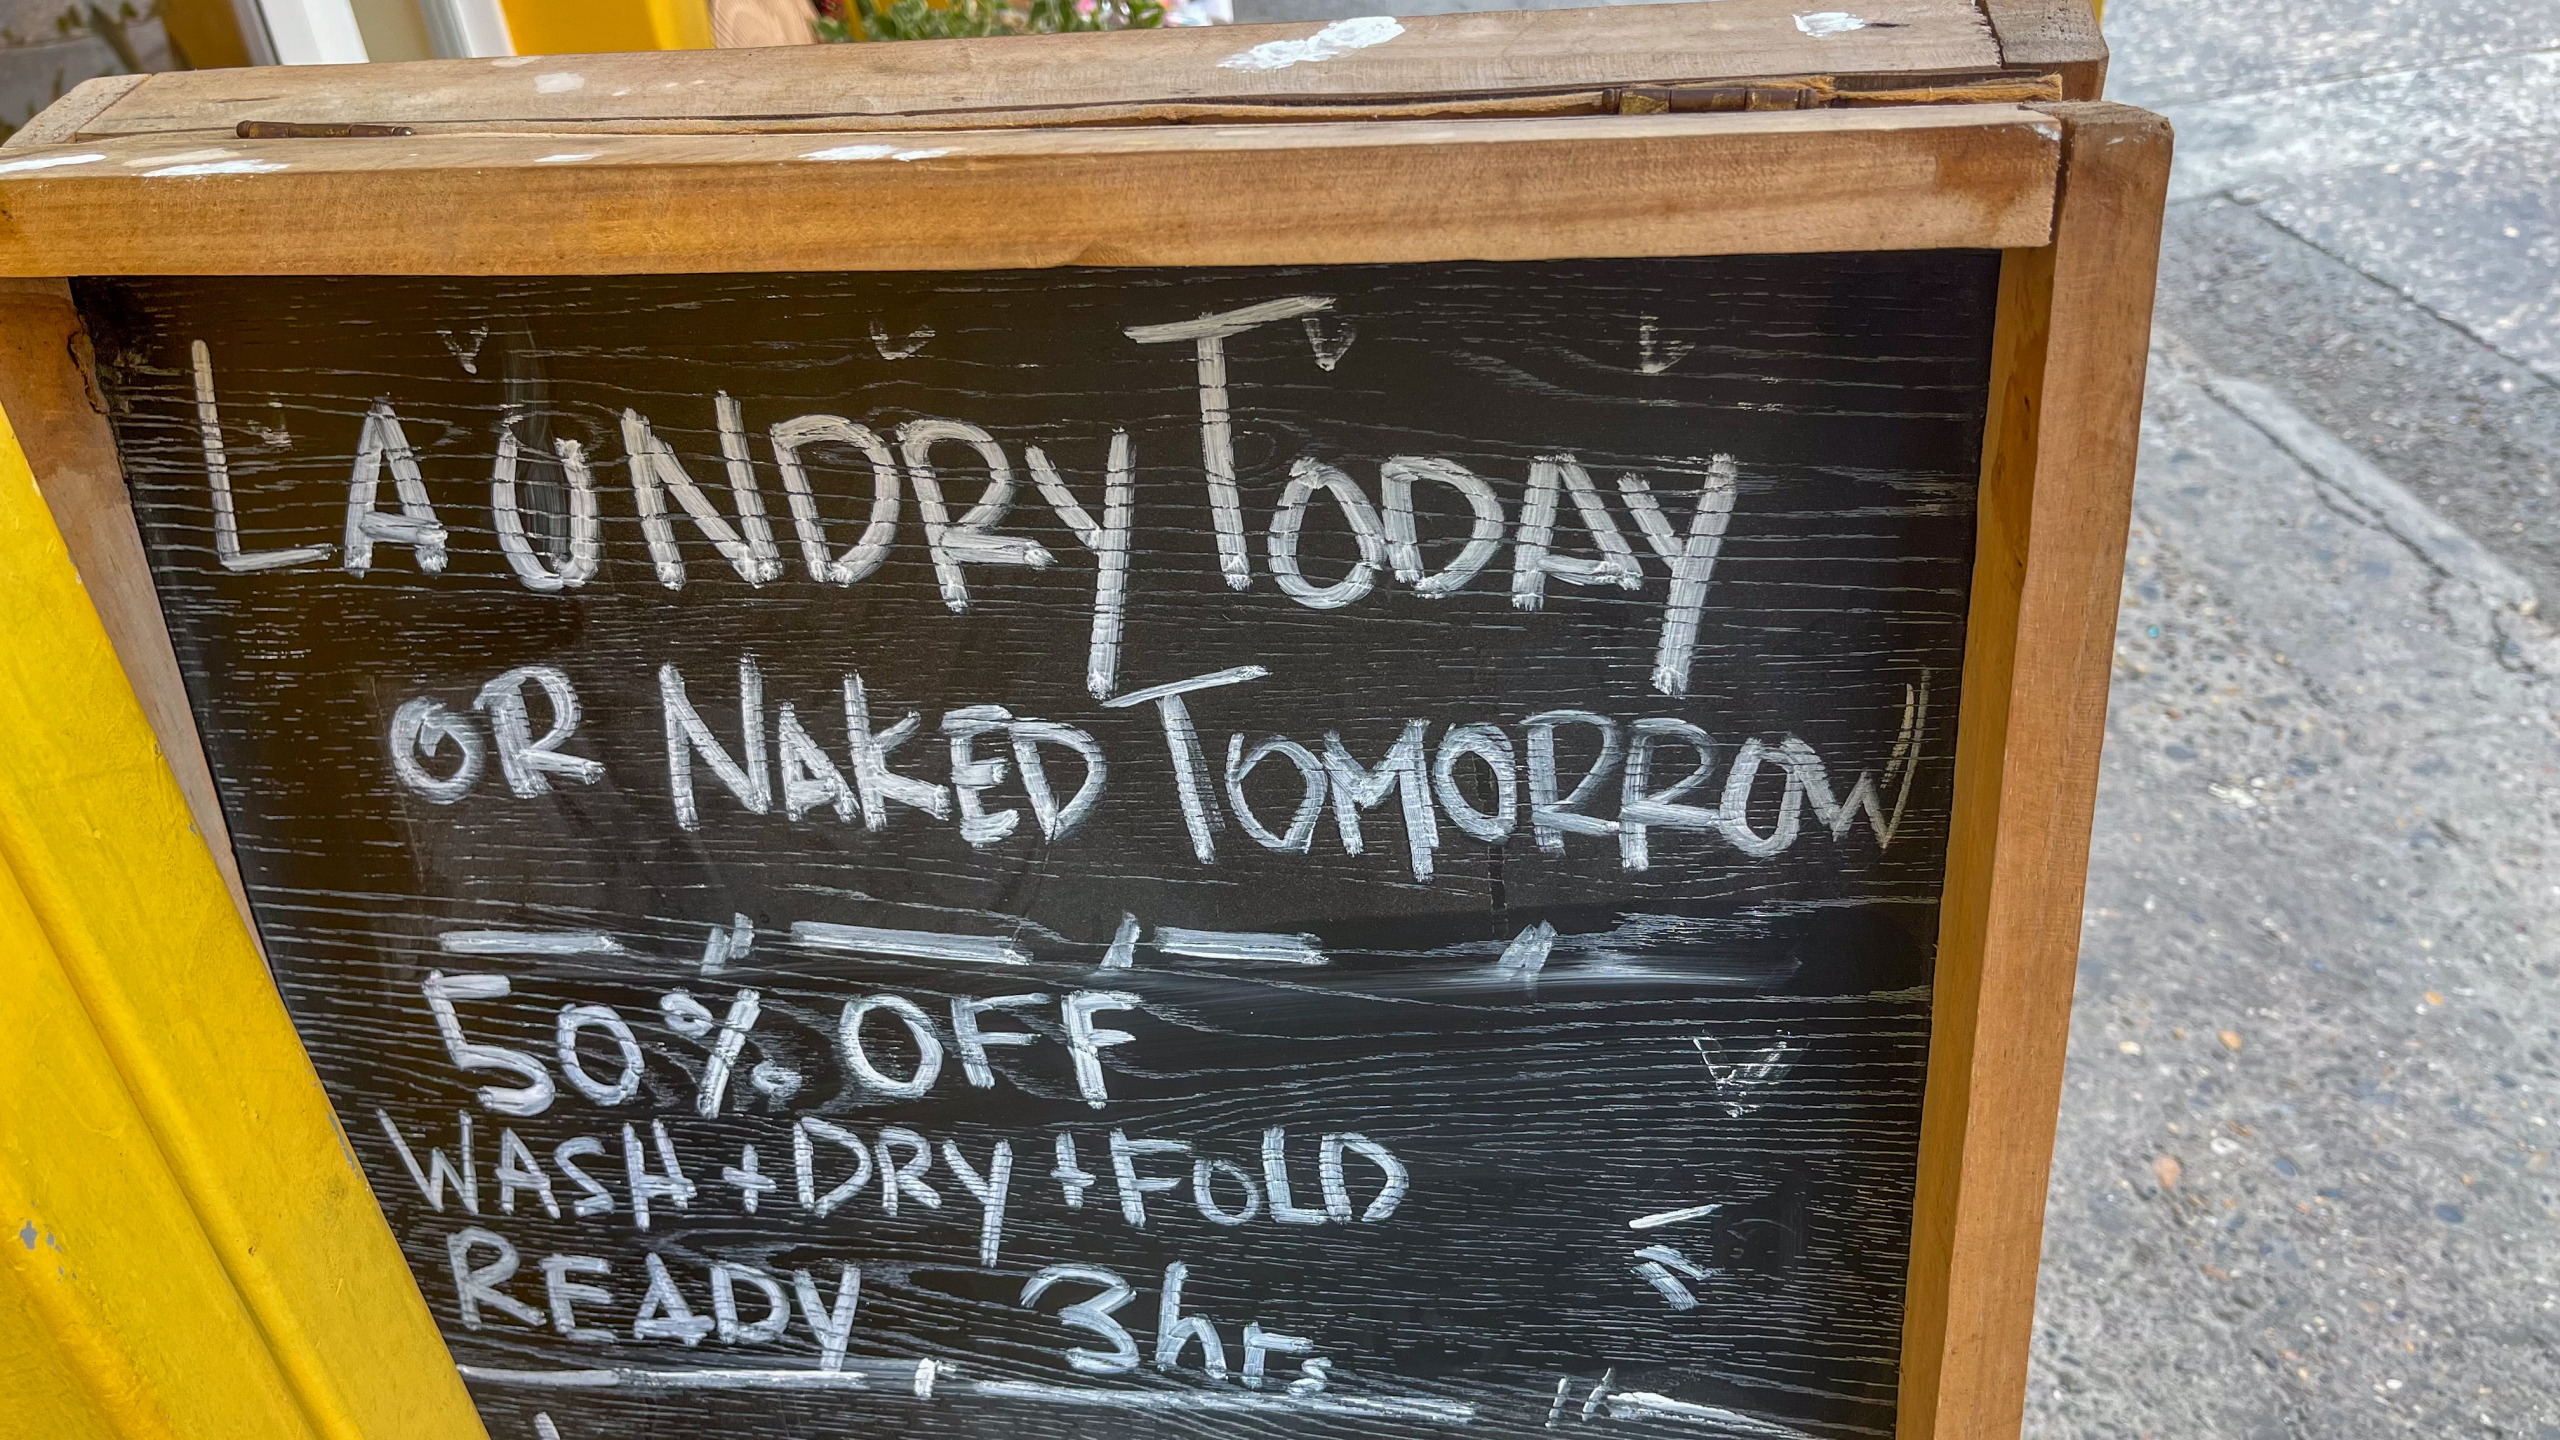 LAUNDRY TODAY
OR NAKED TOMORROW
50% OFF
WASH + DRY + FOLD
READY 3hrs